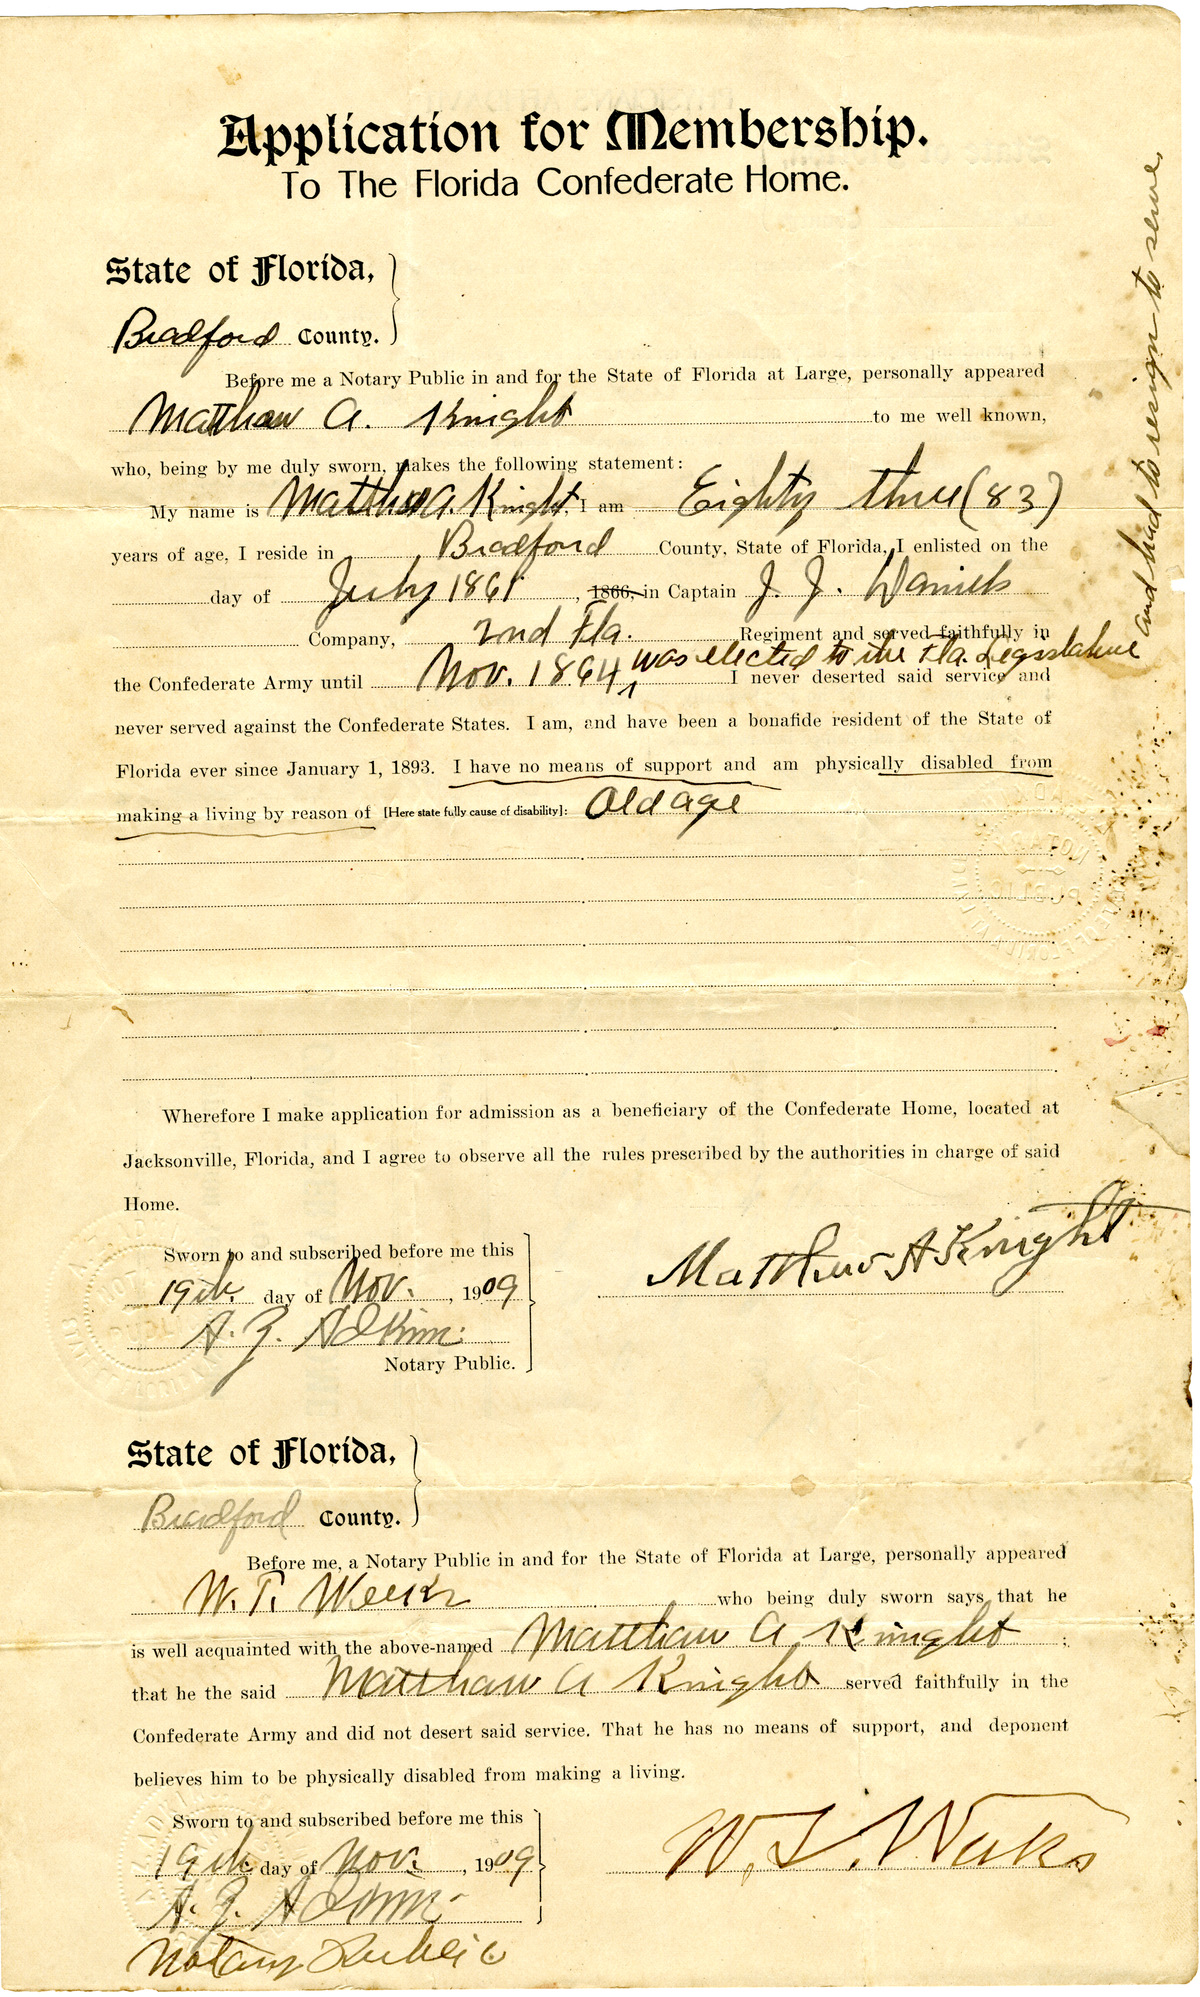 Application for Membership.
To The Florida Confederate Home.
State of Florida,
Bradford County.
Before me a Notary Public in and for the State of Florida at Large, personally appeared
Matthaw A. Knight to me well known,
who, being by me duly sworn, makes the following statement:
My name is Matthew A. Knight, I am Eighty three (83)
years of age, I reside in Bradford County, State of Florida, I enlisted on the
day of July 1861, 1866, in Captain J. J. Daniels
Company, 2nd Fla. Regiment and served faithfully in
the Confederate Army until Nov. 1864, was elected to the Fla. Legislature and had to resign to serve. I never deserted said service and
never served against the Confederate States. I am, and have been a bonafide resident of the State of
Florida ever since January 1, 1893. I have no means of support and am physically disabled from
making a living by reason of [Here state fully cause of disability]: Old age
NOTARY
PUBLIC
Wherefore I make application for admission as a beneficiary of the Confederate Home, located at
Jacksonville, Florida, and I agree to observe all the rules prescribed by the authorities in charge of said
Home.
Sworn to and subscribed before me this
19th day of Nov., 1909
Matthew A Knight
A. Z. Adkins
Notary Public.
State of Florida,
Bradford County.
Before me, a Notary Public in and for the State of Florida at Large, personally appeared
W. T. Weeks who being duly sworn says that he
is well acquainted with the above-named Matthaw A Knight;
that he the said Matthaw A Knight served faithfully in the
Confederate Army and did not desert said service. That he has no means of support, and deponent
believes him to be physically disabled from making a living.
Sworn to and subscribed before me this
19th day of Nov., 1909
W. T. Weeks
A. Z. Adkins
Notary Public